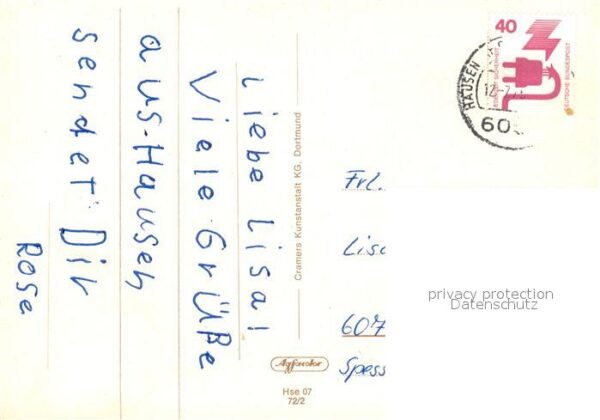 Liebe Lisa!
Viele Grüße
aus Hausen
sendet Dir
Rose
Cramers Kunstanstalt KG. Dortmund
Agfacolor
Hse 07
72/2
40
DEUTSCHE BUNDESPOST
HAUSEN
60
Frl.
Lisa
607
Spess
privacy protection
Datenschutz